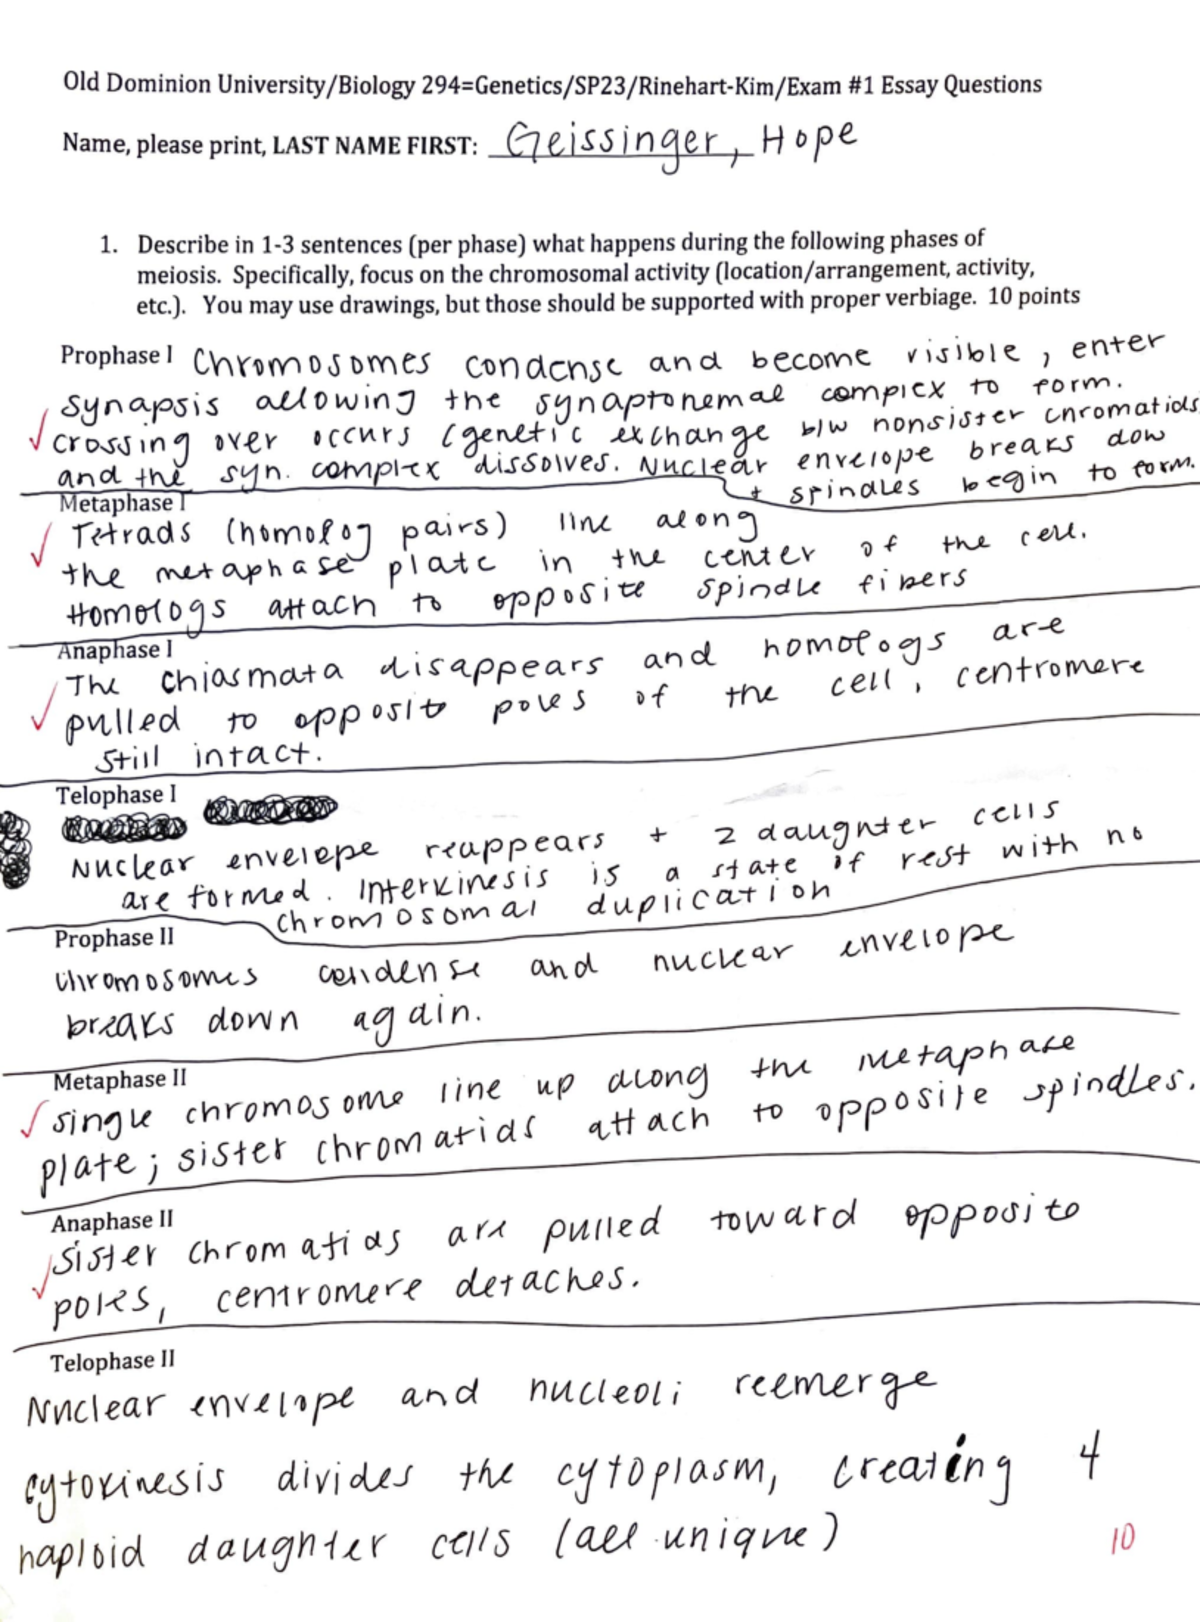 Old Dominion University/Biology 294=Genetics/SP23/Rinehart-Kim/Exam #1 Essay Questions
Name, please print, LAST NAME FIRST: Geissinger, Hope
1. Describe in 1-3 sentences (per phase) what happens during the following phases of
meiosis. Specifically, focus on the chromosomal activity (location/arrangement, activity,
etc.). You may use drawings, but those should be supported with proper verbiage. 10 points
Prophase I Chromosomes condense and become visible, enter
synapsis allowing the synaptonemal complex to form.
crossing over occurs (genetic exchange b/w nonsister chromatids
and the syn. complex dissolves. Nuclear envelope breaks dow
+ spindles begin to form.
Metaphase I
Tetrads (homolog pairs) line along
the metaphase plate in the center of the cell.
Homologs attach to opposite spindle fibers
Anaphase I
The chiasmata disappears and homologs are
pulled to opposite poles of the cell, centromere
still intact.
Telophase I
Nuclear envelope reappears + 2 daughter cells
are formed. Interkinesis is a state of rest with no
chromosomal duplication
Prophase II
Chromosomes condense and nuclear envelope
breaks down again.
Metaphase II
single chromosome line up along the metaphase
plate; sister chromatids attach to opposite spindles.
Anaphase II
Sister chromatids are pulled toward opposite
poles, centromere detaches.
Telophase II
Nuclear envelope and nucleoli reemerge
cytokinesis divides the cytoplasm, creating 4
haploid daughter cells (all unique)
10